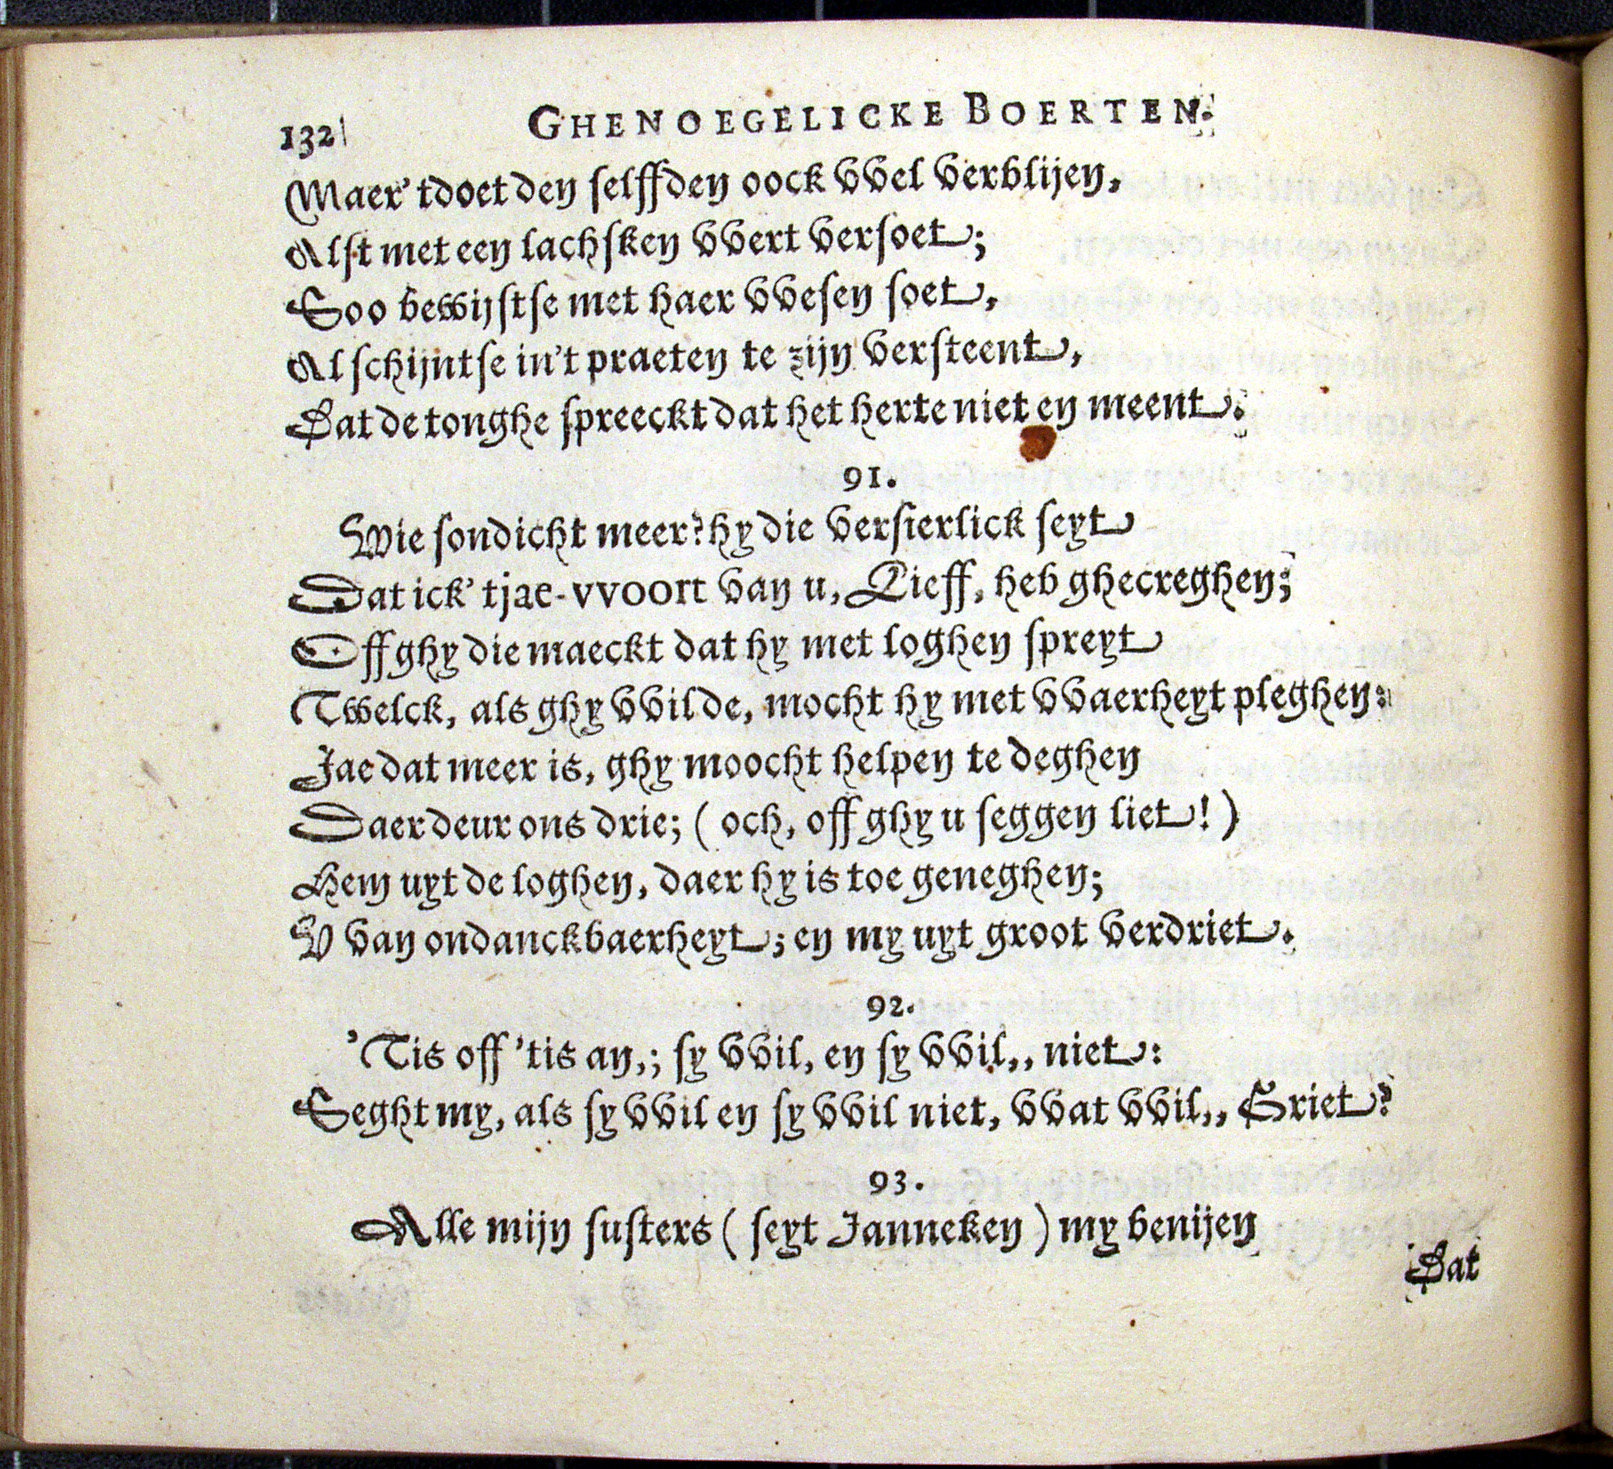 132 GHENOEGELICKE BOERTEN.
Maer 'tdoet den selffden oock vvel verblijen,
Alst met een lachsken vvert versoet;
Soo bewijstse met haer vvesen soet,
Al schijntse in't praeten te zijn versteent,
Dat de tonghe spreeckt dat het herte niet en meent.
91.
Wie sondicht meer? hy die versierlick seyt
Dat ick 'tjae-vvoort van u, Lieff, heb ghecreghen;
Off ghy die maeckt dat hy met loghen spreyt
Twelck, als ghy vvilde, mocht hy met vvaerheyt pleghen:
Jae dat meer is, ghy moocht helpen te deghen
Daer deur ons drie; (och, off ghy u seggen liet!)
Hem uyt de loghen, daer hy is toe geneghen;
V van ondanckbaerheyt; en my uyt groot verdriet.
92.
'Tis off 'tis an,; sy vvil, en sy vvil,, niet:
Seght my, als sy vvil en sy vvil niet, vvat vvil,, Griet?
93.
Alle mijn susters (seyt Janneken) my benijen
Dat